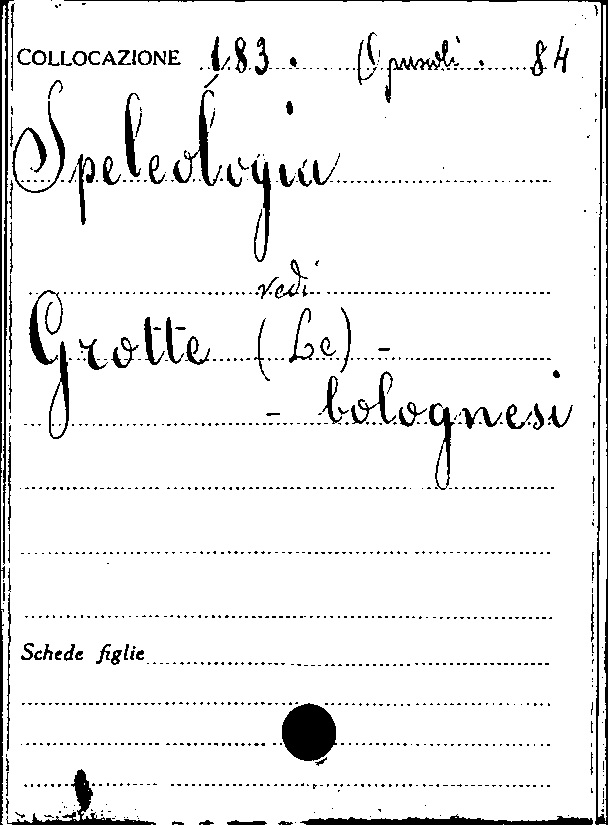 COLLOCAZIONE 183. Opuscoli. 84
Speleologia
vedi
Grotte (Le) -
- bolognesi
Schede figlie